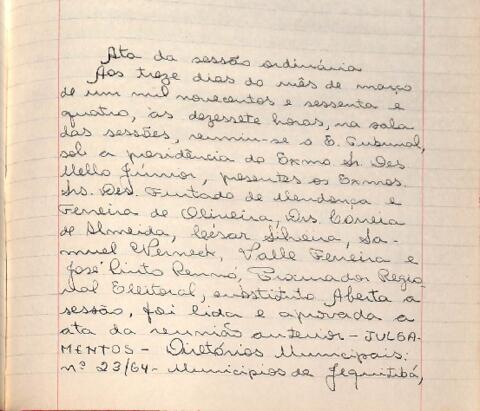 Ata da sessão ordinária
Aos treze dias do mês de março
de um mil novecentos e sessenta e
quatro, às dezessete horas, na sala
das sessões, reuniu-se o E. Tribunal,
sob a presidência do Exmo Sr. Des
Mello Júnior, presentes os Exmos.
Srs. Des. Furtado de Mendonça e
Ferreira de Oliveira, Drs. Correia
de Almeida, César Silveira, Sa-
muel Werneck, Valle Ferreira e
José Pinto Renno, Procurador Regio-
nal Eleitoral, substituto. Aberta a
sessão, foi lida e aprovada a
ata da reunião anterior - JULGA-
MENTOS - Diretórios Municipais:
nº 23/64 - Municípios de Jequitibá,